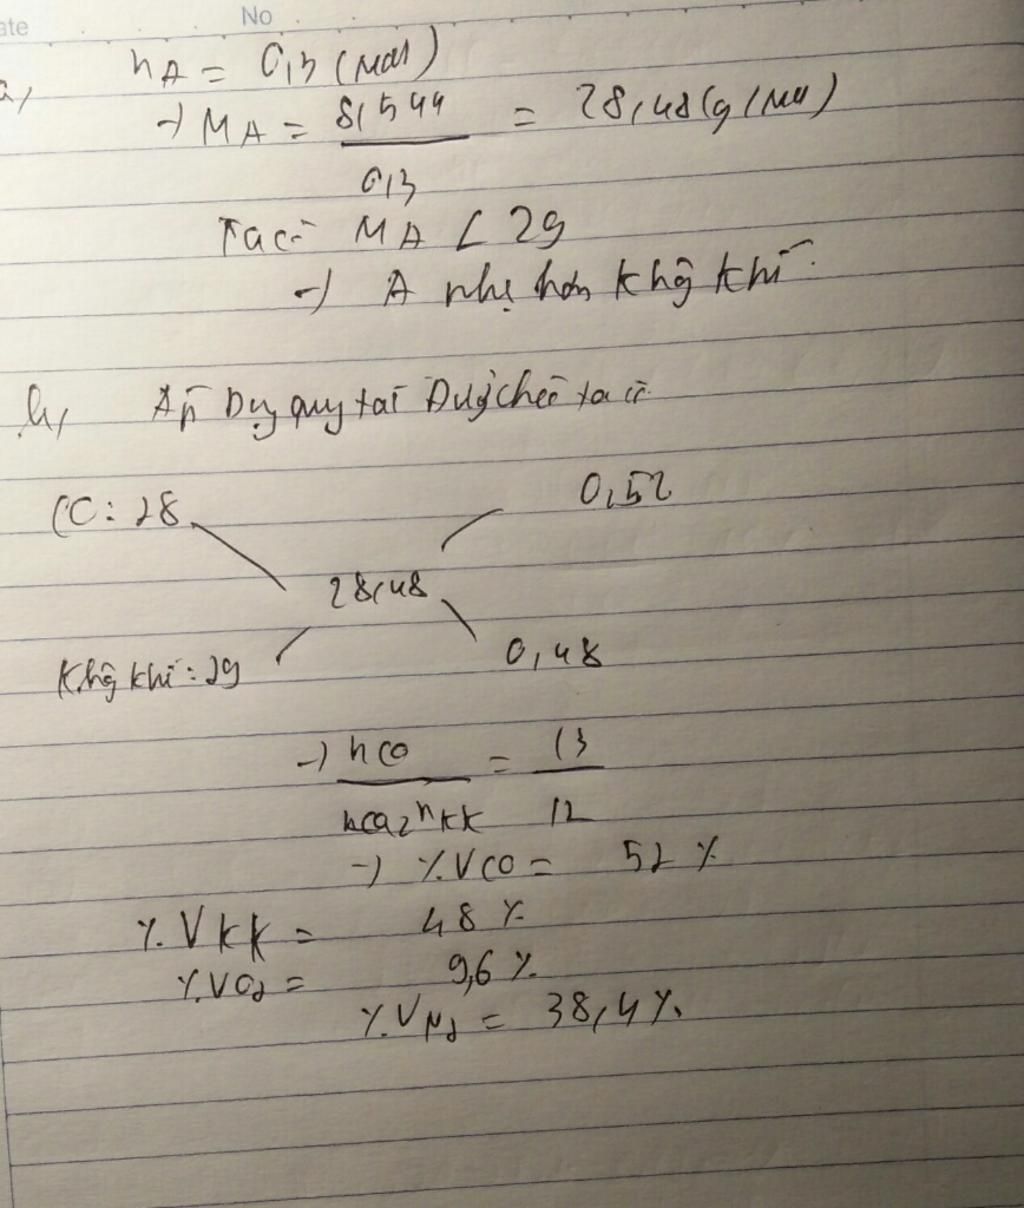 ate No
a, nA = 0,3 (mol)
→ MA = 8,544 / 0,3 = 28,48 (g/mol)
Ta có: MA < 29
→ A nhẹ hơn khg khí
b, Áp Dụg quy tắc Đườg chéo ta có
CO: 28 0,52
28,48
Khg khí: 29 0,48
→ nco / nkk = 13 / 12
→ %VCO = 52 %
%VKK = 48 %
%VO2 = 9,6 %
%VN2 = 38,4 %